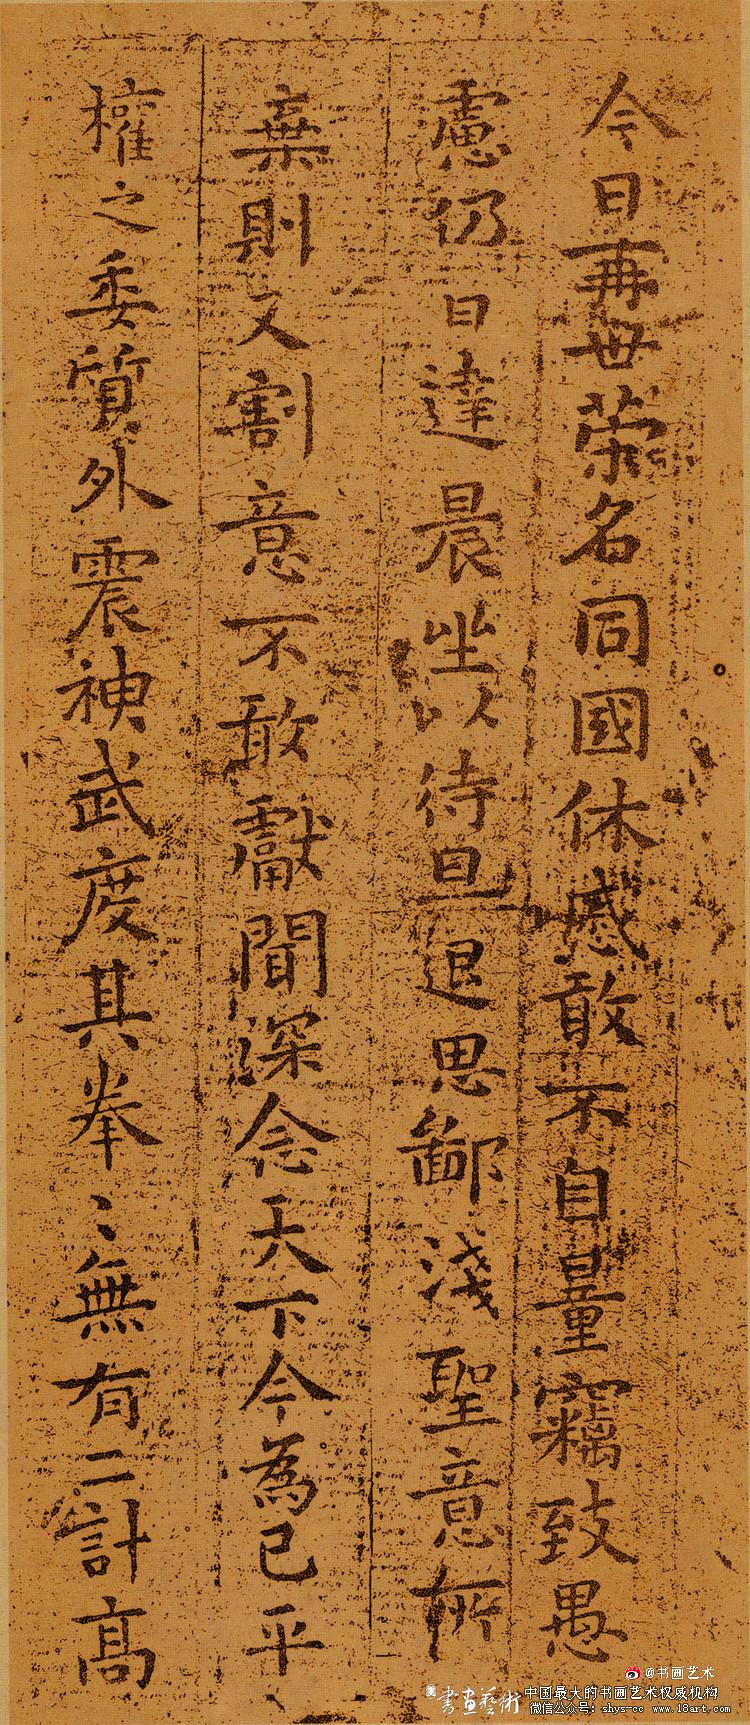 今日再世荣名同國休慼敢不自量竊致愚
慮仍日達晨坐以待旦退思鄙淺聖意所
棄則又割意不敢獻聞深念天下今為已平
權之委質外震神武度其拳〻無有二計高
@书画艺术
書画藝術 中国最大的书画艺术权威机构
微信公众号：shys-cc www.18art.com